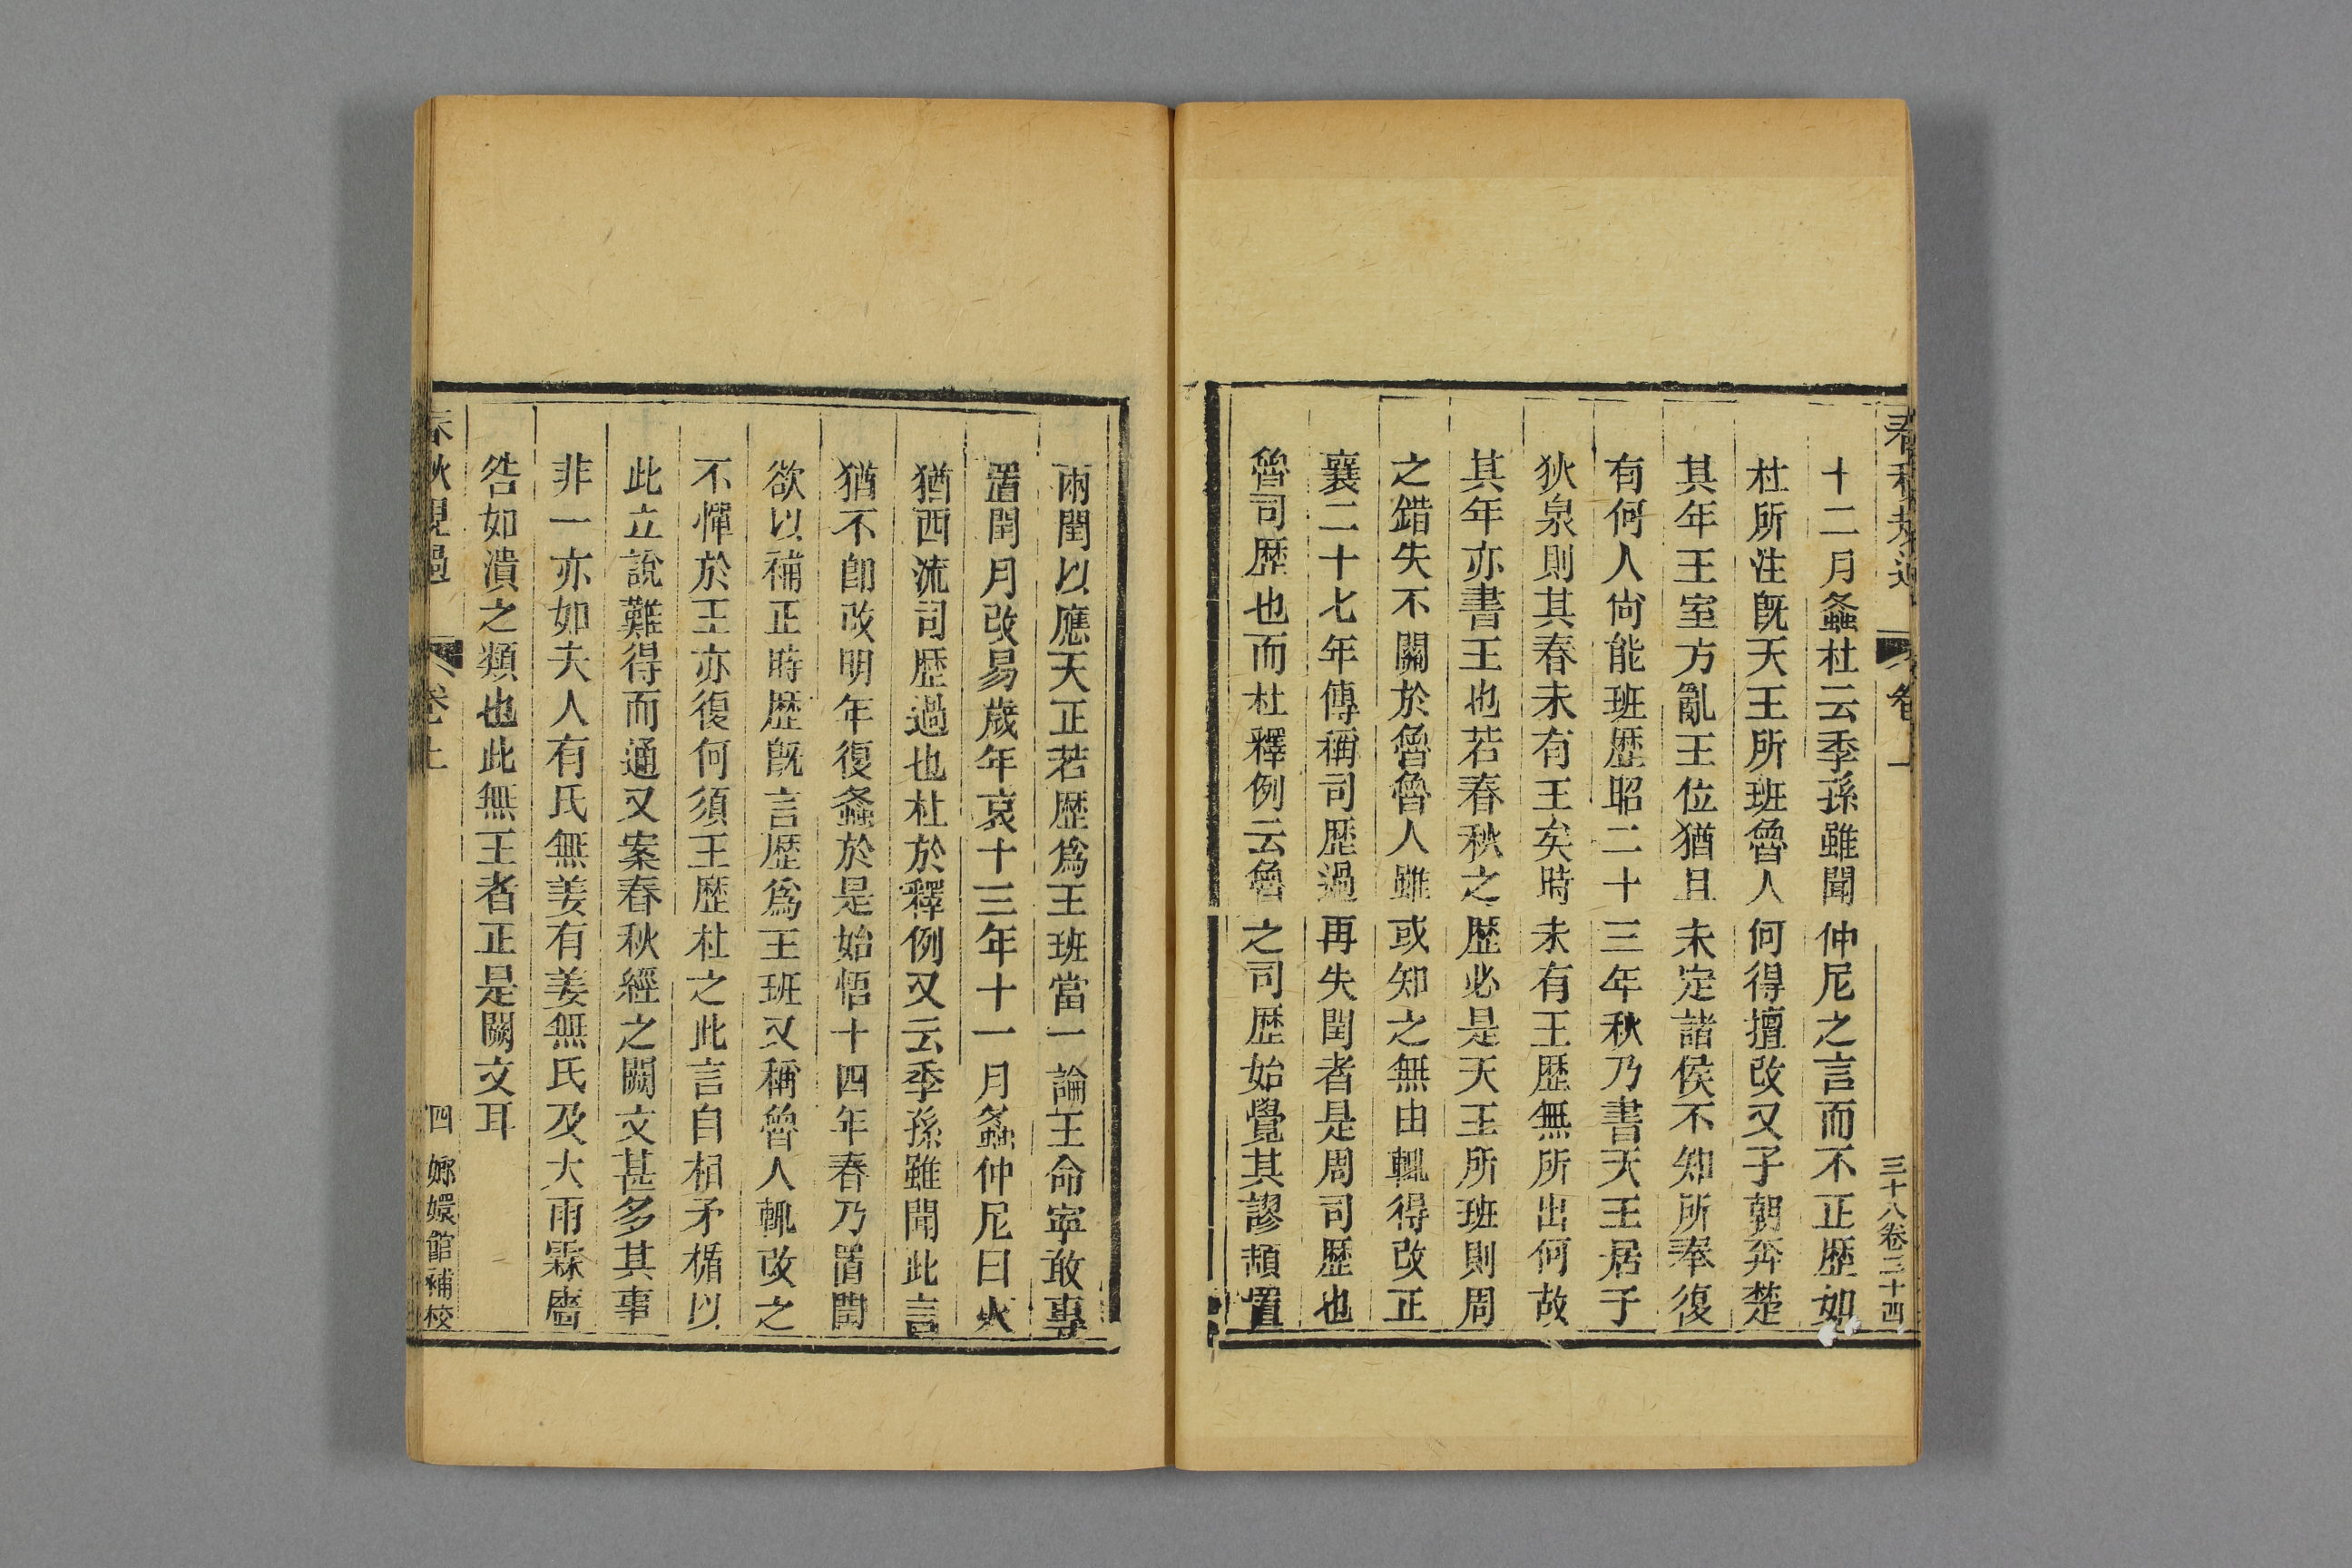 春秋規過 卷上 三十八卷三十四
十二月螽杜云季孫雖聞仲尼之言而不正歷如
杜所注旣天王所班魯人何得擅改又子朝奔楚
其年王室方亂王位猶且未定諸侯不知所奉復
有何人尙能班歷昭二十三年秋乃書天王居于
狄泉則其春未有王矣時未有王歷無所出何故
其年亦書王也若春秋之歷必是天王所班則周
之錯失不關於魯魯人雖或知之無由輒得改正
襄二十七年傳稱司歷過再失閏者是周司歷也
魯司歷也而杜釋例云魯之司歷始覺其謬頿置
兩閏以應天正若歷爲王班當一論王命寧敢專
置閏月改易歲年哀十三年十一月螽仲尼曰火
猶西流司歷過也杜於釋例又云季孫雖聞此言
猶不卽改明年復螽於是始悟十四年春乃置閏
欲以補正時歷旣言歷爲王班又稱魯人輒改之
不憚於王亦復何須王歷杜之此言自相矛楯以
此立說難得而通又案春秋經之闕文甚多其事
非一亦如夫人有氏無姜有姜無氏及大雨霖廧
咎如潰之類也此無王者正是闕文耳
春秋規過 卷上 四 嫏嬛館補校